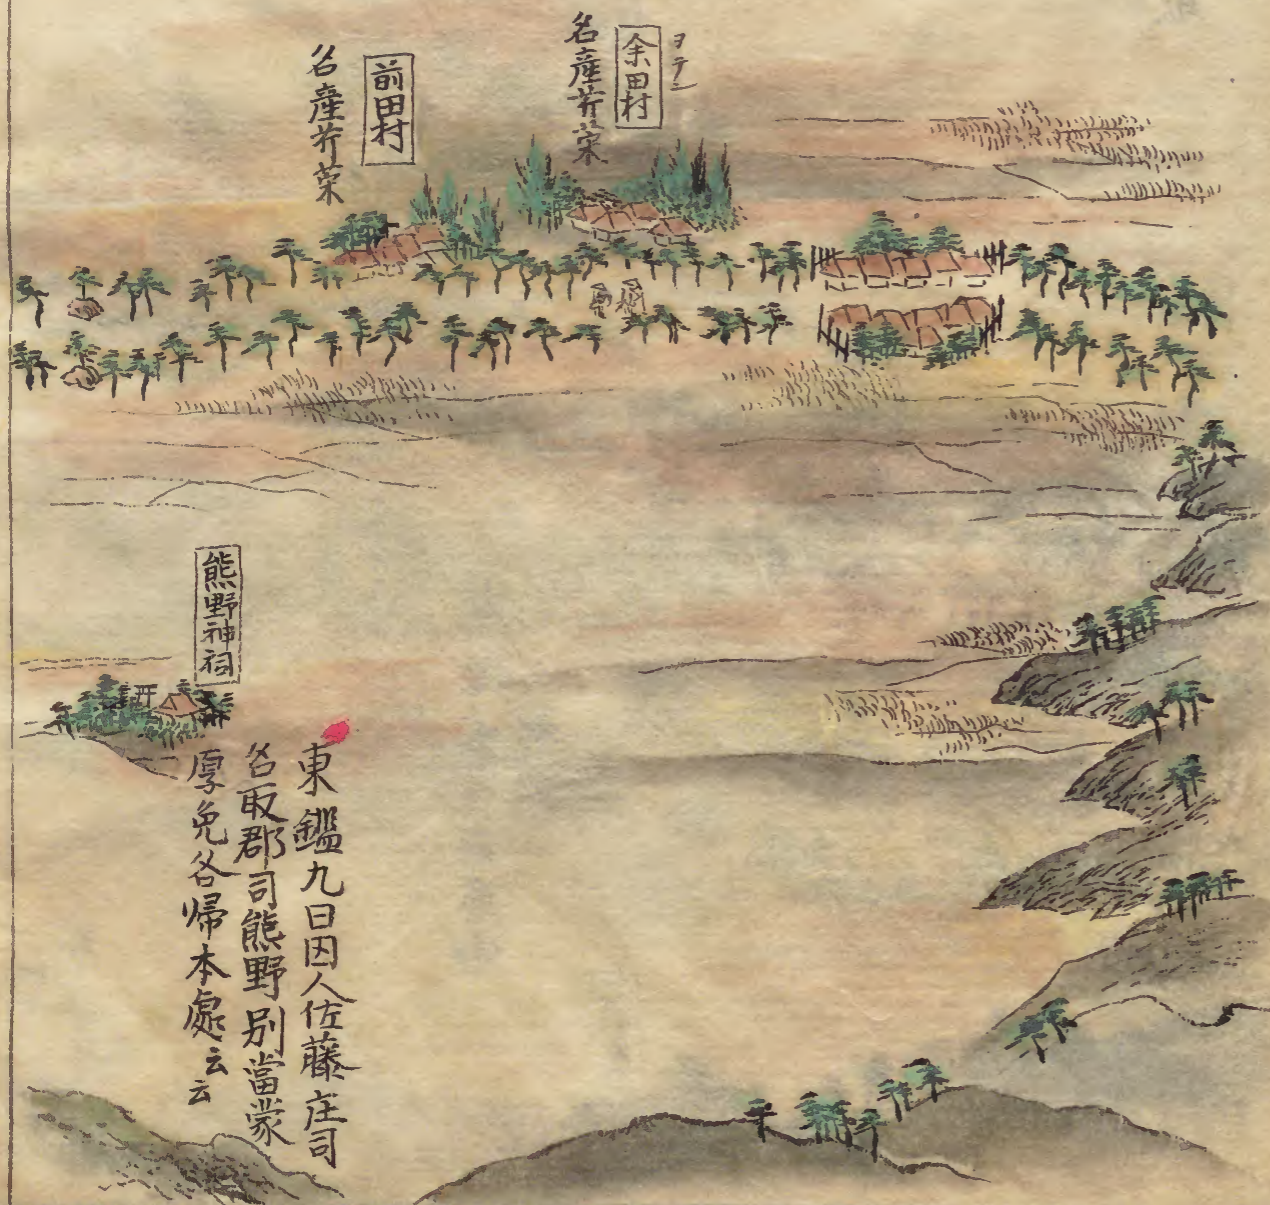 ヨテン
余田村
名産芹菜
前田村
名産芹菜
熊野神祠
東鑑九日囚人佐藤庄司
名取郡司熊野別當蒙
厚免各帰本處云云